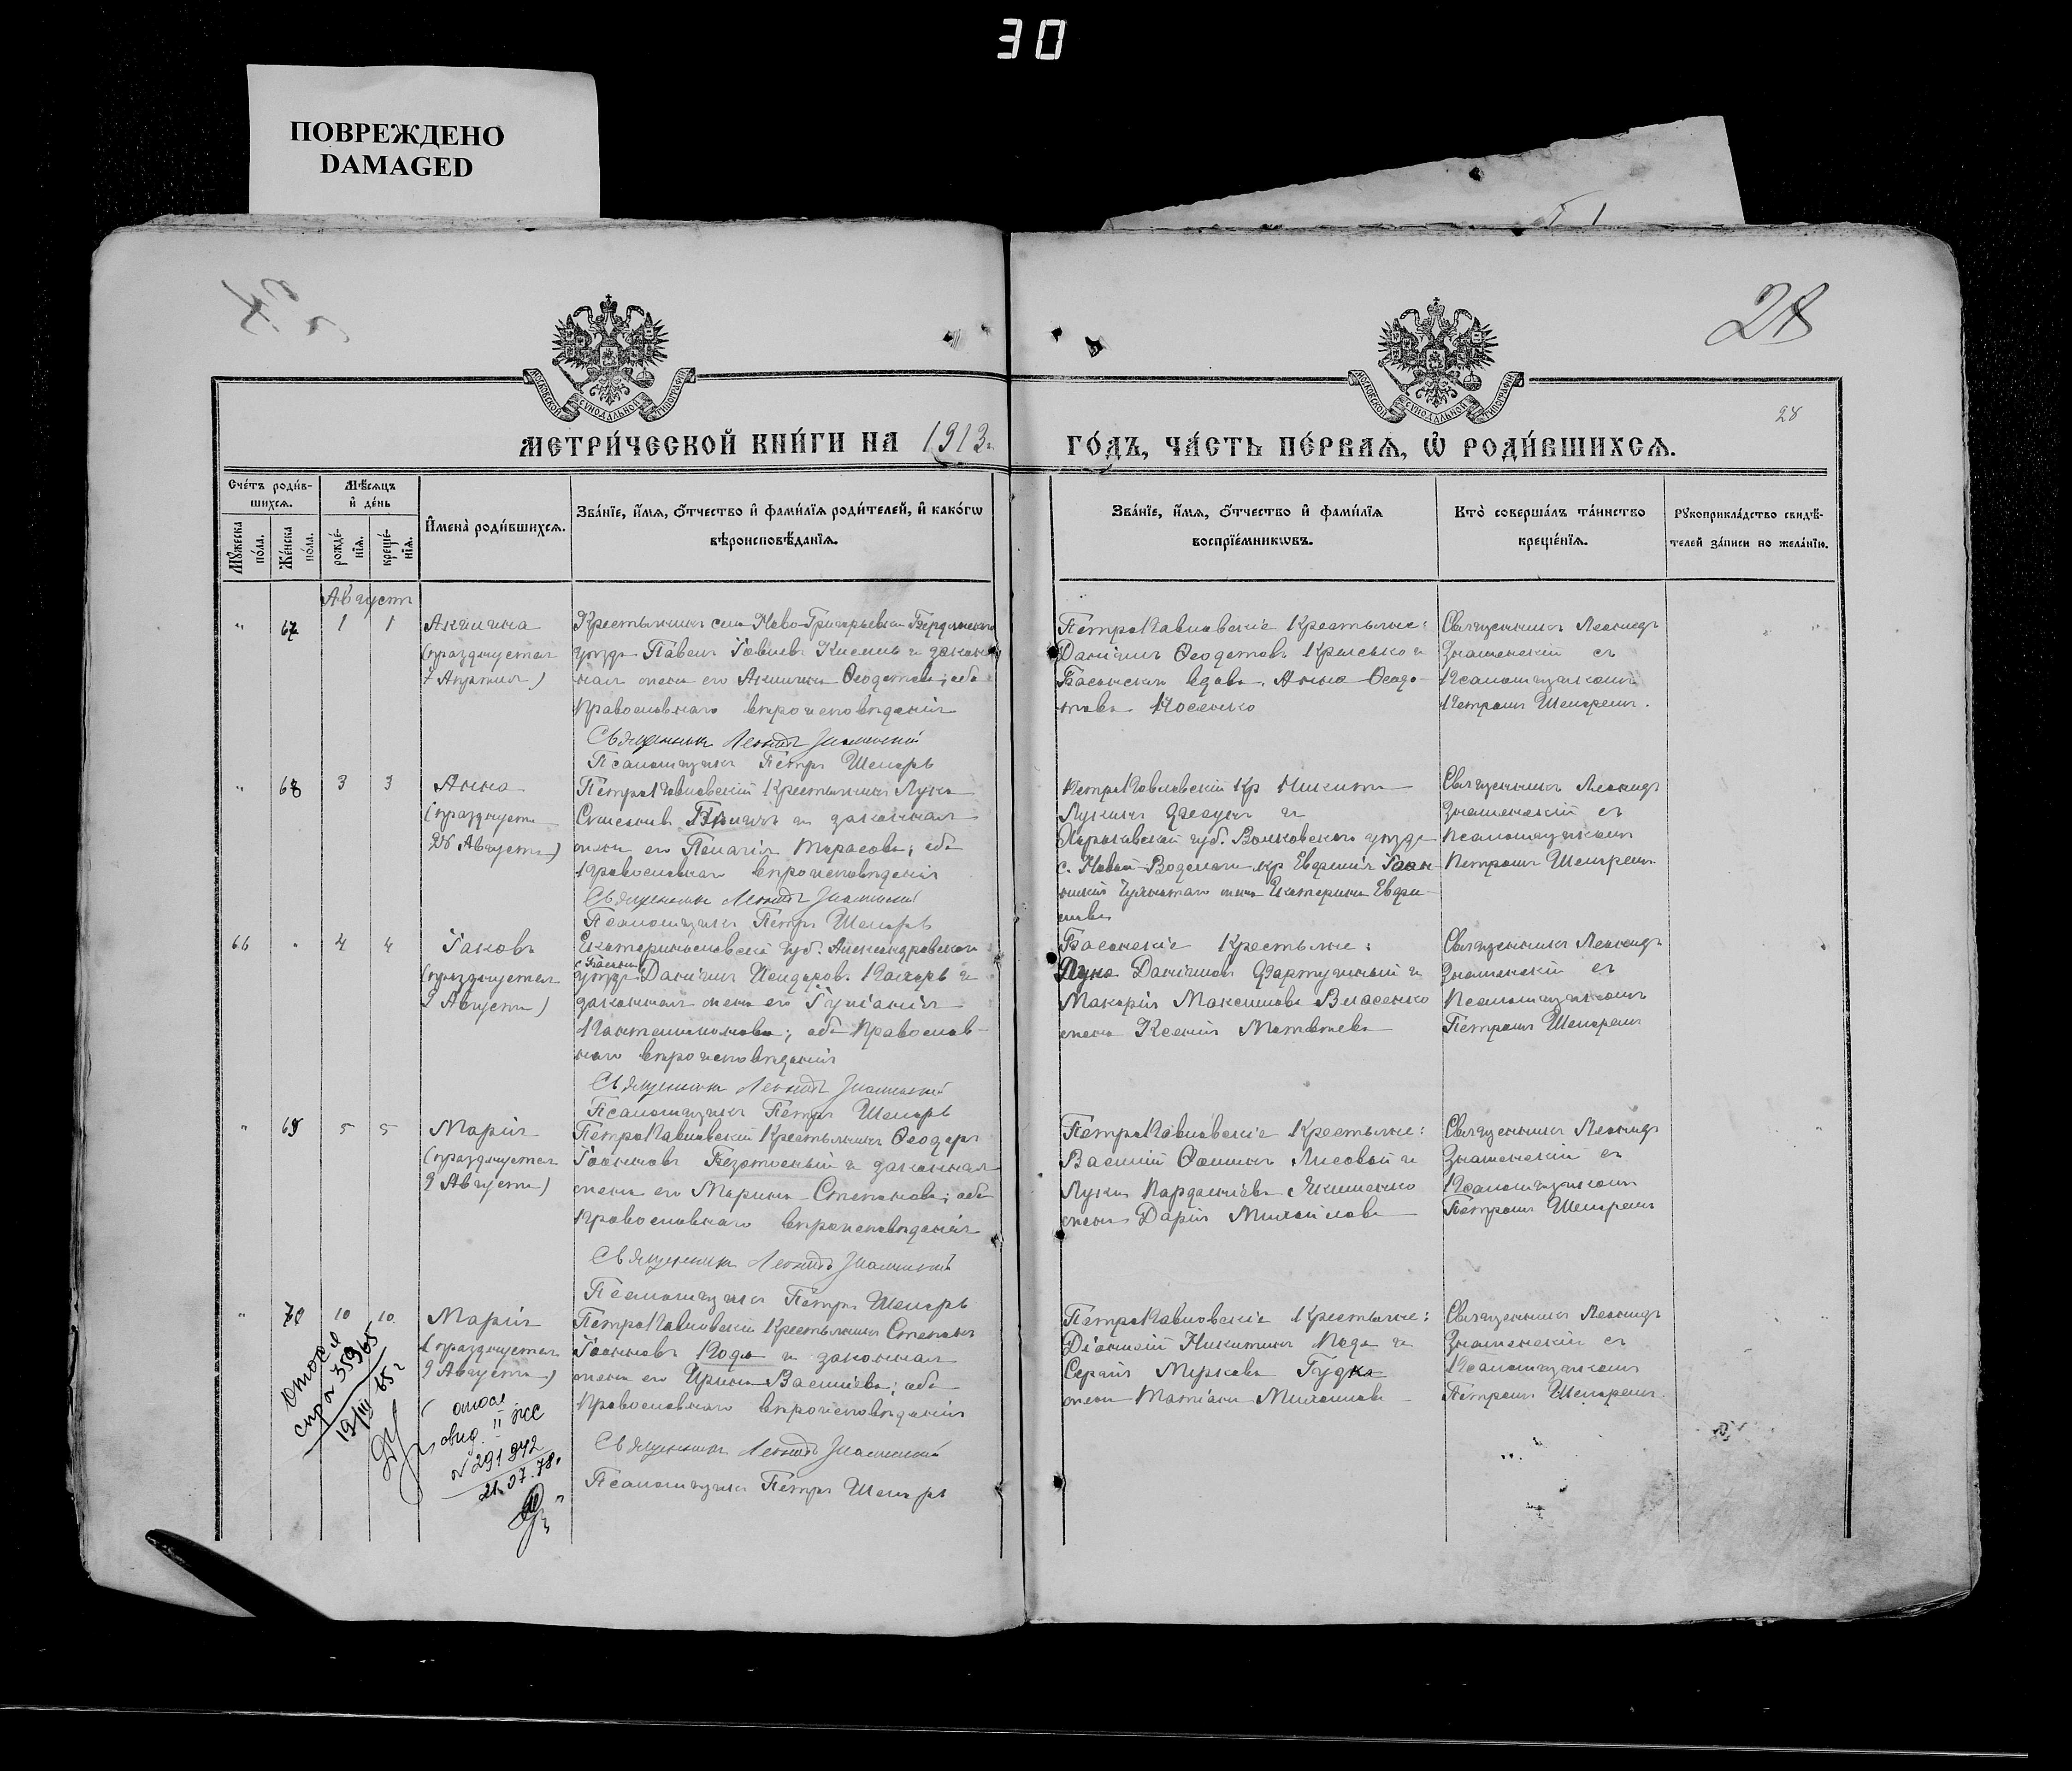 30
ПОВРЕЖДЕНО
DAMAGED
28
28
МЕТРИ́ЧЕСКОЙ КНИ́ГИ НА 1913 г.
ГО́ДЪ, ЧА́СТЬ ПЕ́РВАѦ, Ѡ РОДИ́ВШИХСѦ.
МОСКОВСКОЙ СѴНОДАЛЬНОЙ ТИПОГРАФІИ
МОСКОВСКОЙ СѴНОДАЛЬНОЙ ТИПОГРАФІИ
Сче́тъ роди́в-
шихсѧ.
Мꙋжеска по́ла.
Же́нска по́ла.
Мѣ́сѧцъ
и҆ де́нь
рожде́-
нїѧ.
креще́-
нїѧ.
И҆мена̀ роди́вшихсѧ.
Зва́нїе, и҆́мѧ, ѻ҆́тчество и҆ фами́лїѧ роди́телей, и҆ како́гѡ
вѣроисповѣ́данїѧ.
Зва́нїе, и҆́мѧ, ѻ҆́тчество и҆ фами́лїѧ
воспрїе́мникѡвъ.
Кто̀ соверша́лъ та́инство
креще́нїѧ.
Рꙋкоприкла́дство свидѣ́-
телей за́писи по жела́нїю.
Августъ
" 67 1 1 Акилина
(празднуется
7 Апрѣля)
Крестьянинъ села Ново-Григорьевки Бердянскаго
уѣзда Павелъ Іовлевъ Киселъ и закон
ная жена его Акилина Ѳеодотова; оба
Православнаго вѣроисповѣданія
Священникъ Леонидъ Знаменскій
Псаломщикъ Петръ Шепарь
ПетроПавловскіе Крестьяне:
Даніилъ Ѳеодотовъ Крысько и
Басанская вдова Анна Ѳеодо-
това Косенко
Священникъ Леонидъ
Знаменскій съ
Псаломщикомъ
Петромъ Шепаремъ.
" 68 3 3 Анна
(празднуется
25 Августа)
ПетроПавловскій Крестьянинъ Лука
и законная
жена его Пелагія Тарасова; оба
Православнаго вѣроисповѣданія
Священникъ Леонидъ Знаменскій
Псаломщикъ Петръ Шепарь
ПетроПавловскій Кр Никита
Лукинъ и
Харьковской губ. Валковскаго уѣзда
с. Новой Водолаги кр Евфимія
жена Екатерина Евфи-
мова
Священникъ Леонидъ
Знаменскій съ
Псаломщикомъ
Петромъ Шепаремъ.
66 " 4 4 Іаковъ
(празднуется
9 Августа)
Екатеринославской губ. Александровскаго
с. Басани
уѣзда Даніилъ Исидоровъ и
законная жена его Іуліанія
Пантелеимонова; оба Православ-
наго вѣроисповѣданія
Священникъ Леонидъ Знаменскій
Псаломщикъ Петръ Шепарь
Басанскіе Крестьяне:
Лука Даніиловъ Фартушный и
Макарія Максимова Власенко
жена Ксенія Матвѣева
Священникъ Леонидъ
Знаменскій съ
Псаломщикомъ
Петромъ Шепаремъ
" 69 5 5 Марія
(празднуется
9 Августа)
ПетроПавловскій Крестьянинъ Ѳеодоръ
Іоанновъ и законная
жена его Марина Степанова; оба
Православнаго вѣроисповѣданія
Священникъ Леонидъ Знаменскій
Псаломщикъ Петръ Шепарь
ПетроПавловскіе Крестьяне:
Василій Ѳоминъ Лисовой и
Луки Якименко
жена Дарія Михайлова
Священникъ Леонидъ
Знаменскій съ
Псаломщикомъ
Петромъ Шепаремъ
" 70 10 10 Марія
(празднуется
9 Августа)
ПетроПавловскій Крестьянинъ Степанъ
Іоанновъ Кода и законная
жена его Ирина Васильева; оба
Православнаго вѣроисповѣданія
Священникъ Леонидъ Знаменскій
Псаломщикъ Петръ Шепарь
ПетроПавловскіе Крестьяне:
Діонисій Никитинъ Кода и
Сергія Маркова Гудка
жена Татіана
Священникъ Леонидъ
Знаменскій съ
Псаломщикомъ
Петромъ Шепаремъ.
359365
19/III 65 г
№ 291942
21.07.78.